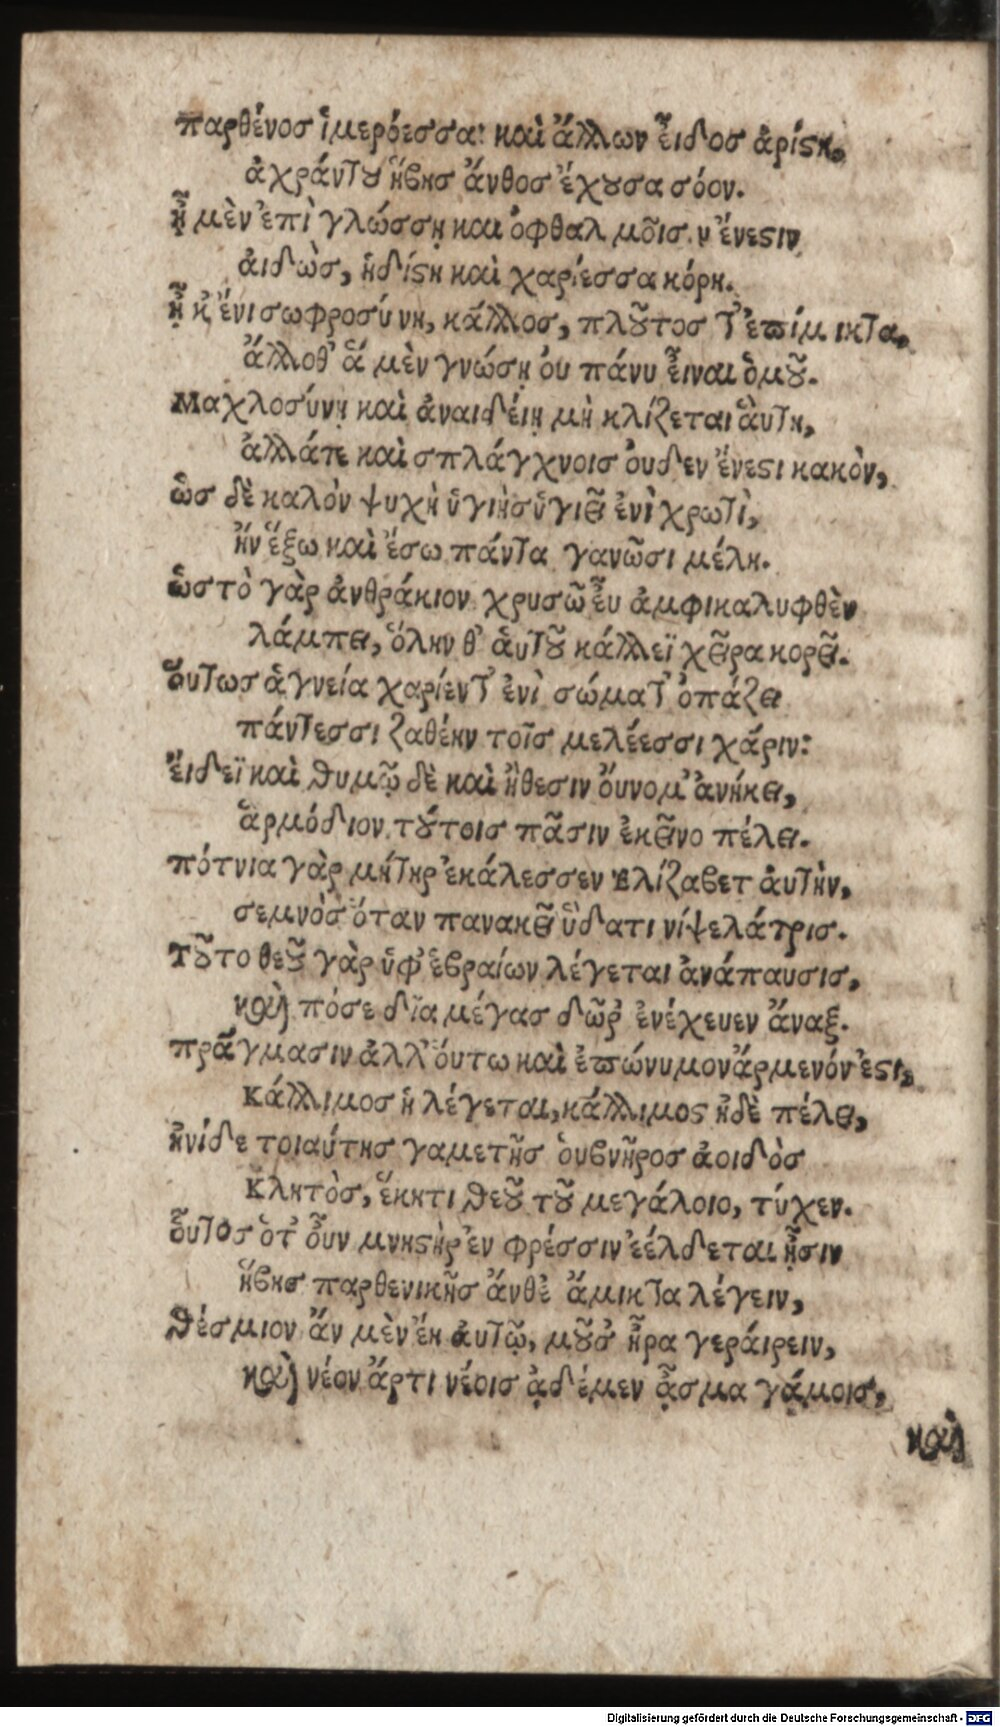 παρθένοσ ἱμερόεσσα: καὶ ἄλλων εἶδοσ ἀρίϛη,
ἀχράντȣ ἥβησ ἄνθοσ ἔχȣσα σόον.
ᾗ μὲν ἐπὶ γλώσσῃ και ὀφθαλμοῖσιν ἔνεϛιν
ἀιδὼσ, ἡδίϛη καὶ χαρίεσσα κόρη.
ᾗ κ̓ ἔνι σωφροσύνη, κάλλοσ, πλȣ͂τοσ τ' ἐπίμικτα,
ἄλλοθ' ἃ μὲν γνώσῃ ὀυ πάνυ εἶναι ὁμȣ͂.
Μαχλοσύνῃ καὶ ἀναιδέιῃ μὴ κλίζεται ἅυτη,
ἀλλάτε καὶ σπλάγχνοισ ὀυδεν ἔνεϛι κακὸν,
ὡσ δὲ καλὸν ψυχὴ ὑγιὴσ ὑγιεῖ ἐνὶ χρωτὶ,
ἣν ἔξω καὶ ἔσω πάντα γανῶσι μέλη.
ὡστὸ γὰρ ἀνθράκιον χρυσῶ εὖ ἀμφικαλυφθὲν
λάμπει, ὅλην θ' ἁυτȣ͂ κάλλεϊ χεῖρα κορεῖ.
ὅυτωσ ἁγνεία χαρίεντ' ἐνὶ σώματ' ὀπάζει
πάντεσσι ζαθέην τοῖσ μελέεσσι χάριν:
ἔιδεϊ καὶ θυμῷ δὲ καὶ ἤθεσιν ὄυνομ' ἀνήκει,
ἁρμόδιον τȣ́τοισ πᾶσιν ἐκεῖνο πέλει.
πότνια γὰρ μήτηρ ἐκάλεσσεν Ἐλίζαβετ ἀυτὴν,
σεμνὸσ ὅταν πανακεῖ ὕδατι νίψελάτρισ.
Τȣ͂το θεȣ͂ γὰρ ὑφ' ἑβραίων λέγεται ἀνάπαυσισ,
καὶ πόσε δῖα μέγασ δῶῤ ἐνέχευεν ἄναξ.
πράγμασιν ἀλλ' ὅυτω καὶ ἐπώνυμον ἄρμενόν ἐϛι,
Κάλλιμοσ ἣ λέγεται, κάλλιμος ἠδὲ πέλει,
ἠνίδε τοιαύτησ γαμετῆσ ὁυβνῆροσ ἀοιδὸσ
Κλητὸσ, ἕκητι θεȣ͂ τȣ͂ μεγάλοιο, τύχεν.
ὗτος ὅτ' ὖν μνηϛὴρ ἐν φρέσσιν ἐέλδεται ᾗσιν
ἥβησ παρθενικῆσ ἄνθἐ ἄμικτα λέγειν,
θέσμιον ἂν μὲν ἔη ἀυτῷ, μȣ͂σ̓ ἦρα γεράιρειν,
καὶ νέον ἄρτι νέοισ ᾀδέμεν ᾆσμα γάμοισ,
καὶ
Digitalisierung gefördert durch die Deutsche Forschungsgemeinschaft - DFG